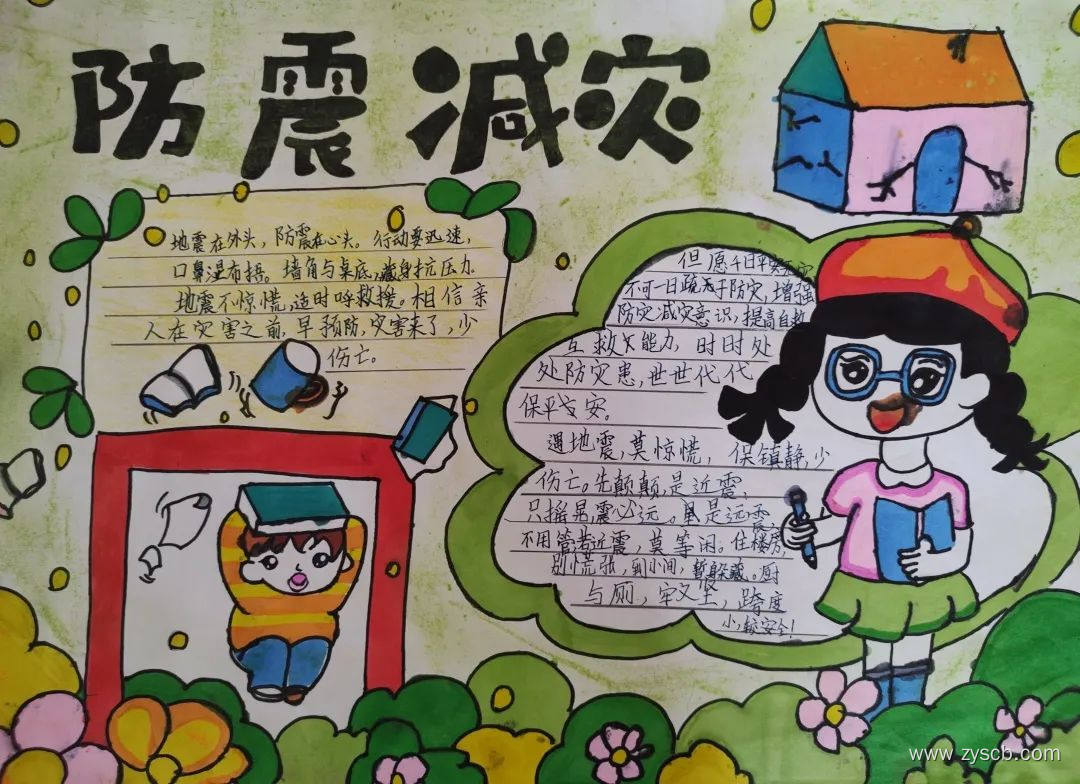 防震减灾
地震在外头，防震在心头。行动要迅速，
口鼻湿布捂。墙角与桌底，藏身抗压力.
地震不惊慌，适时呼救援。相信亲
人在灾害之前，早预防，灾害来了，少
伤亡。
但愿千日平安无灾
不可一日疏于防灾，增强
防灾减灾意识，提高自救
互救能力，时时处
处防灾患，世世代代
保平安。
遇地震，莫惊慌，保镇静，少
伤亡。先颠颠，是近震，
只摇晃震必远。是远震
不用管若近震，莫等闲。住楼房，
别慌张，到小间，暂身藏。厨
与厕，牢又坚，跨度
小，较安全！
www.zyscb.com